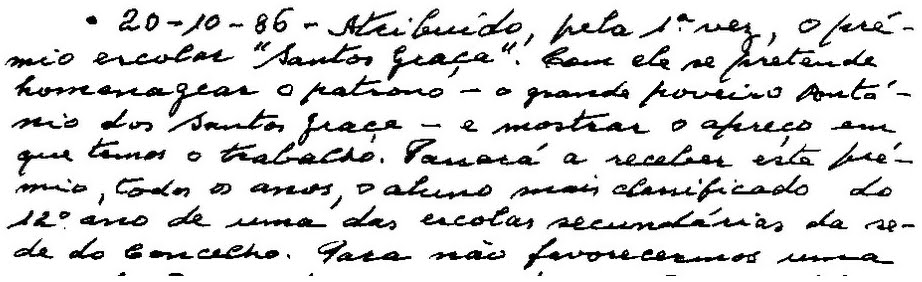 • 20-10-86 - Atribuído, pela 1ª vez, o pré-
mio escolar "Santos Graça". Com ele se pretende
homenagear o patrono - o grande poveiro Antó-
nio dos Santos Graça - e mostrar o apreço em
que temos o trabalho. Passará a receber este pré-
mio, todos os anos, o aluno mais classificado do
12º ano de uma das escolas secundárias da se-
de do Concelho. Para não favorecermos uma